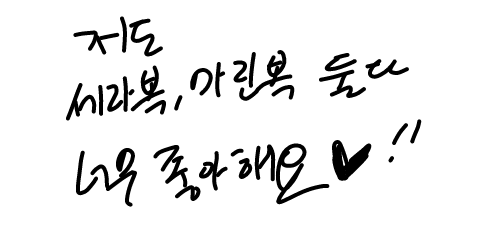 저도
세라복, 마린복 둘다
너무 좋아해요♥!!